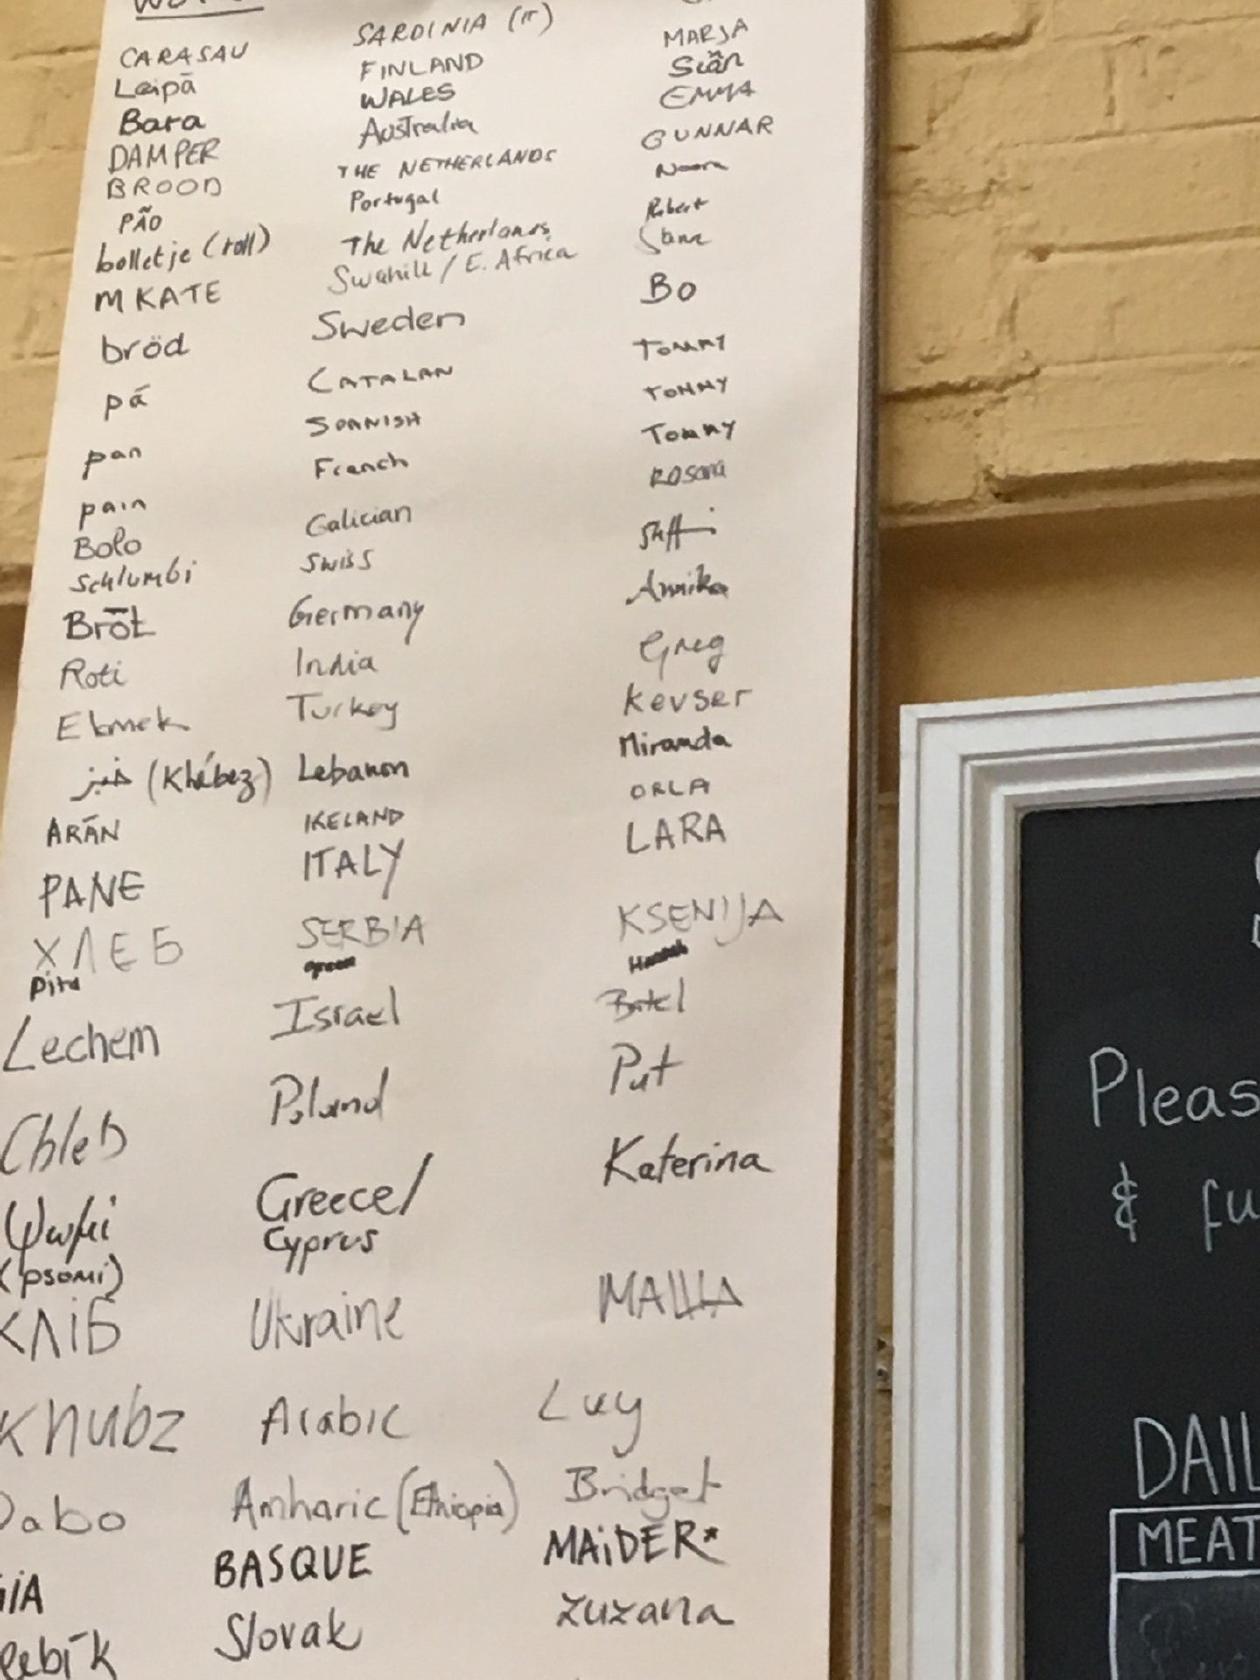 CARASAU SARDINIA (IT) MARJA
Leipä FINLAND Siân
Bara WALES EMMA
DAMPER Australia GUNNAR
BROOD THE NETHERLANDS Noora
PÃO Portugal Robert
bolletje (roll) The Netherlands
MKATE Swahili / E. Africa Bo
bröd Sweden TOMMY
pá CATALAN TOMMY
pan SPANISH TOMMY
pain French ROSANA
Bolo Galician Steffi
Schlumbi SWISS Annika
Brōt Germany Greg
Roti India Kevser
Ekmek Turkey Miranda
خبز (Khábez) Lebanon ORLA
ARÁN IRELAND LARA
PANE ITALY
ХЛЕБ SERBIA KSENIJA
pita
Lechem Israel
Chleb Poland Pat
Ψωμί Greece/ Katerina
(psomí) Cyprus
ХЛІБ Ukraine МАША
Khubz Arabic Lucy
Dabo Amharic (Ethiopia) Bridget
BASQUE MAiDER*
Slovak Zuzana
Pleas
& fu
DAIL
MEAT